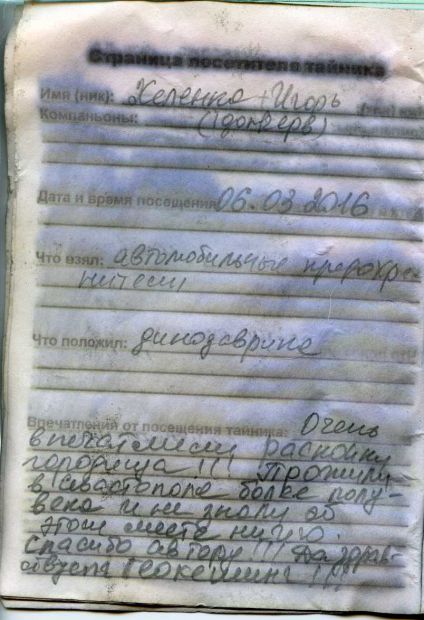 Страница посетителя тайника
Имя (ник): Хеленка + Игорь
Компаньоны:
Дата и время посещения: 06.03.2016
Что взял: автомобильные предохра-
нители
Что положил: динозаврика
Впечатления от посещения тайника: Очень
впечатлили раскопки
городища!!! Прожили
в Севастополе более полу-
века и не знали об
этом месте ничего.
Спасибо автору!!! Да здрав-
ствует геокешинг!!!